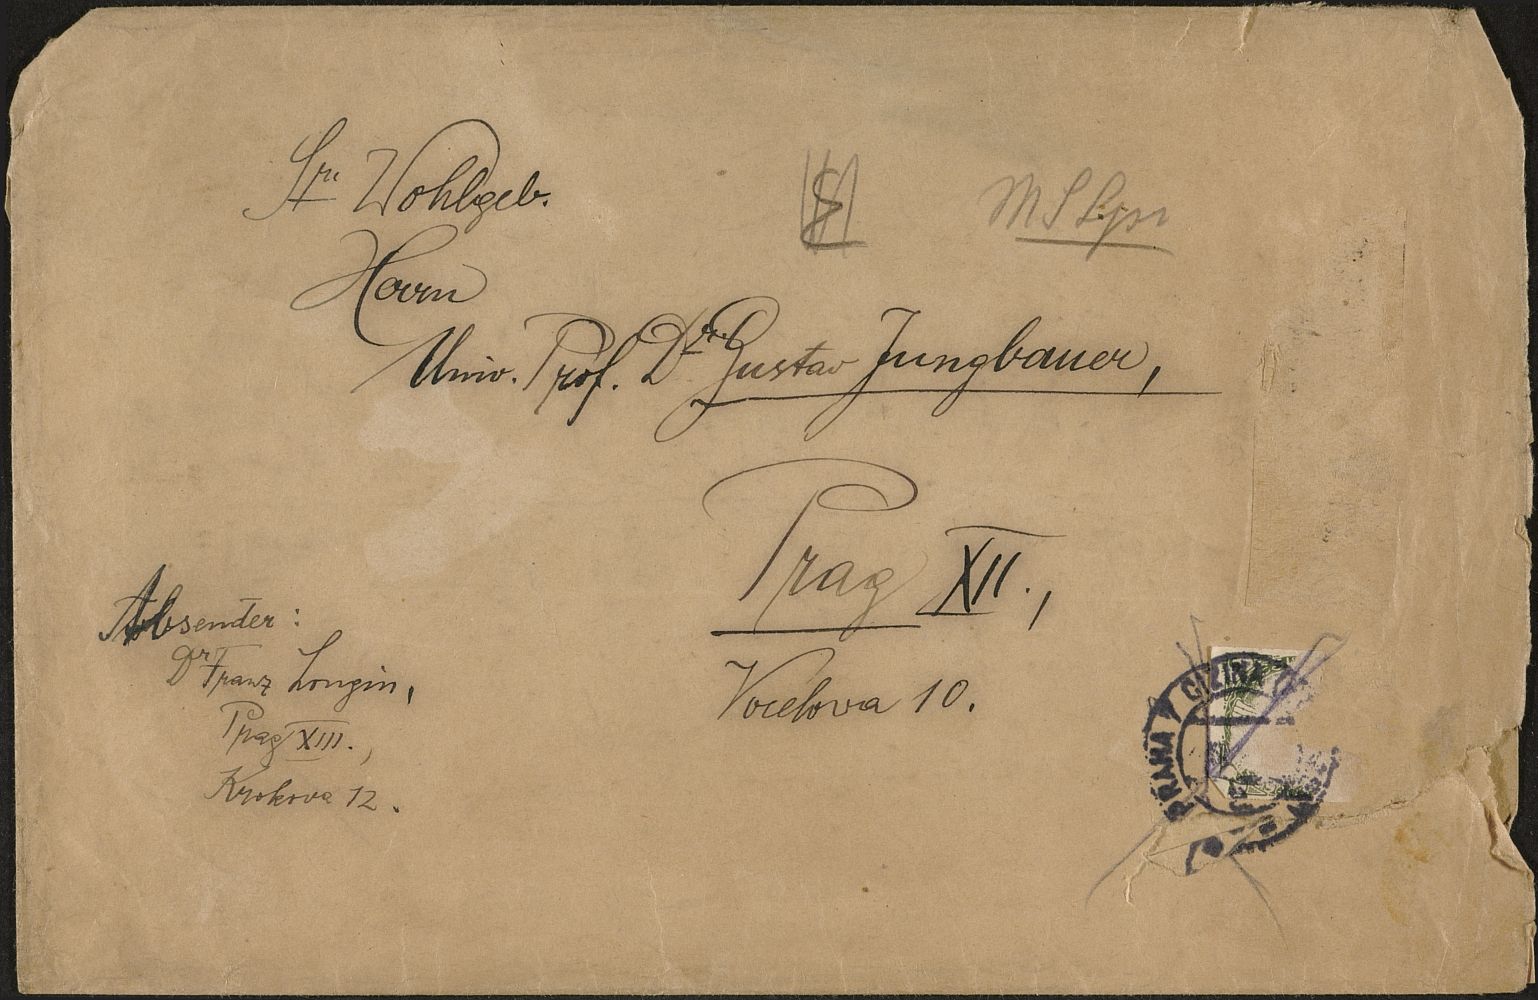 Sr. Wohlgeb.
Herrn
Univ. Prof. Dr. Gustav Jungbauer,
Prag XII.,
Vocelova 10.
Absender:
Dr Franz Longin,
Prag XIII.,
Krokova 12.
PRAHA